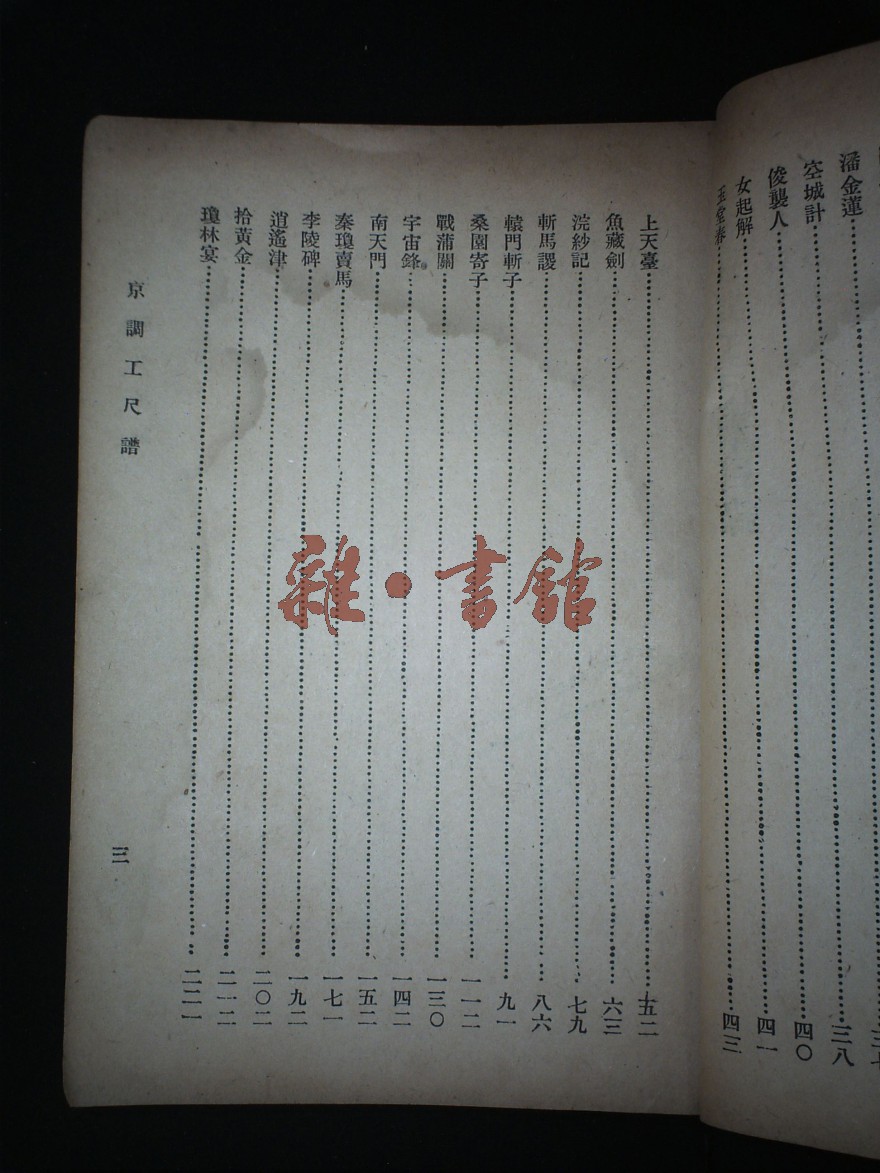 潘金蓮 三八
空城計 四〇
俊襲人 四一
女起解
玉堂春 四三
上天臺 五二
魚藏劍 六三
浣紗記 七九
斬馬謖 八六
轅門斬子 九一
桑園寄子 一一二
戰蒲關 一三〇
宇宙鋒 一四二
南天門 一五二
秦瓊賣馬 一七一
李陵碑 一九二
逍遙津 二〇二
拾黃金 二一二
瓊林宴 二二一
京調工尺譜
三
雜·書館